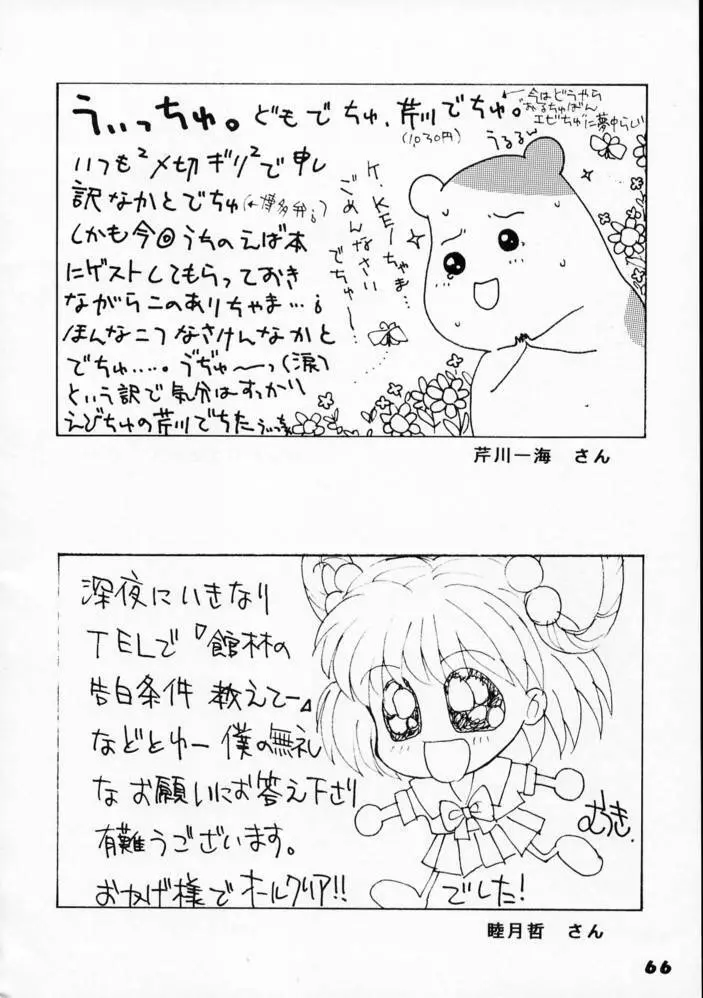 うぃっちゅ。どもでちゅ、芹川でちゅ。
(1030円)
←今はどうやら
エビちゅに夢中らしい
うるるっ
いつも〆切ギリ²で申し
訳なかとでちゅ(←博多弁)
しかも今回うちのえば本
にゲストしてもらっておき
ながらこのありちゃま…
ほんなこつなさけんなかと
でちゅ…。うぢゅ〜っ(涙)
という訳で気分はすっかり
えびちゅの芹川でちた
K.KEIちゃま…
ごめんなさい
でちゅー…
芹川一海 さん
深夜にいきなり
TELで『館林の
告白条件 教えてー』
などとゆー僕の無礼
なお願いにお答え下さり
有難うございます。
おかげ様でオールクリア!!
でした!
むつき.
睦月哲 さん
66